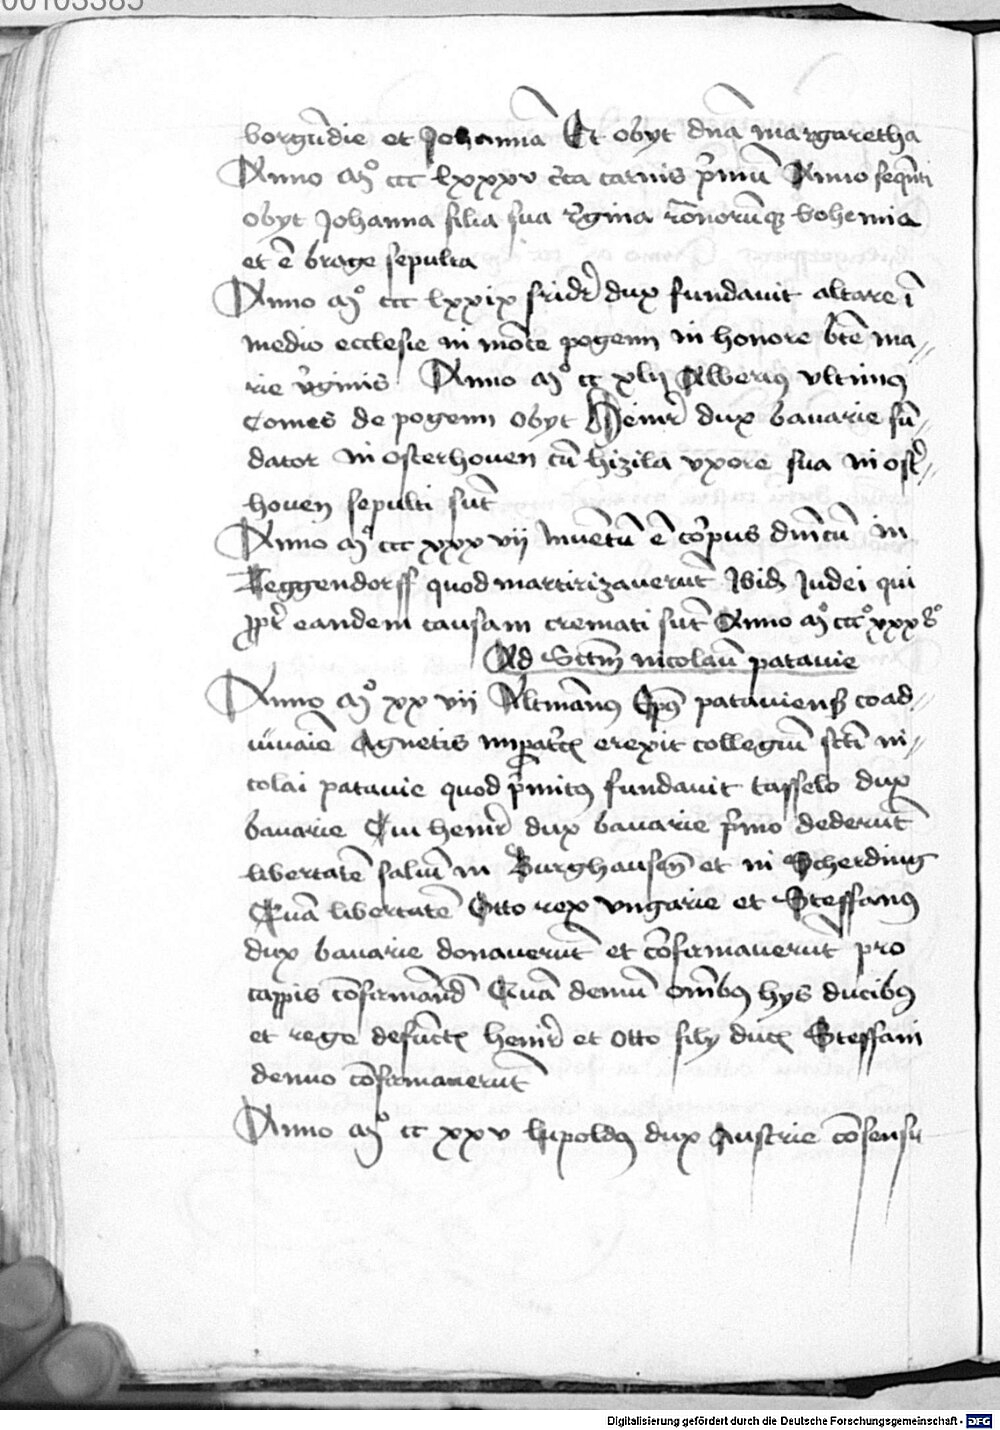 00103385
borgūdie et Johannā Et obyt dnā margaretha
Anno mº ccc lxxxv c̄ca carnis pͥmū Anno seqn̄ti
obyt Johanna filia sua rͤgina rōnorūqꝫ bohemia
et ē brage sepulta
Anno mº ccc lxxix fridr̄ dux fundauit altare ī
medio ecclesie in mōte pogenn in honore bt̄e ma//
rie vͥginis Anno mº cc xlij Albertꝰ vltimꝰ
Comes de pogenn obyt Heinr̄ dux bauarie fū//
dator in osterhouen cū hizila vxore sua in ost̄//
houen sepulti sūt
Anno mº ccc xxx vii Inuētū ē corpus dnīcū in
Teggendorff quod martirizauerūt Ibidꝫ Judei qui
ꝓpt̄ eandem causam cremati sūt Anno mº cccº xxx8º
Ad Sctm̄ nicolaū patauie
Anno mº xx vii Altmānꝰ Ep̄s patauiens̄ coad//
iuuāte Agnetis impatͥcꝭ erexit collegiū sct̄i ni//
colai patauie quod pͥmitꝰ fundauit tasselo dux
bauarie Cui heinr̄ dux bauarie pͥmo dederūt
libertatē saliū in Burghausen̄ et in Scherding
Quā libertatē Otto rex vngarie et Steffanꝰ
dux bauarie donauerūt et cōfirmauerūt pro
cappis cōfirmand̄ Quā demū om̄ibꝰ hys ducibꝰ
et rege defūctꝭ heinr̄ et Otto filij ducꝭ Steffani
denuo cōfirmauerūt
Anno mº cc xxv lupoldꝰ dux Austrie cōsensu
Digitalisierung gefördert durch die Deutsche Forschungsgemeinschaft - DFG